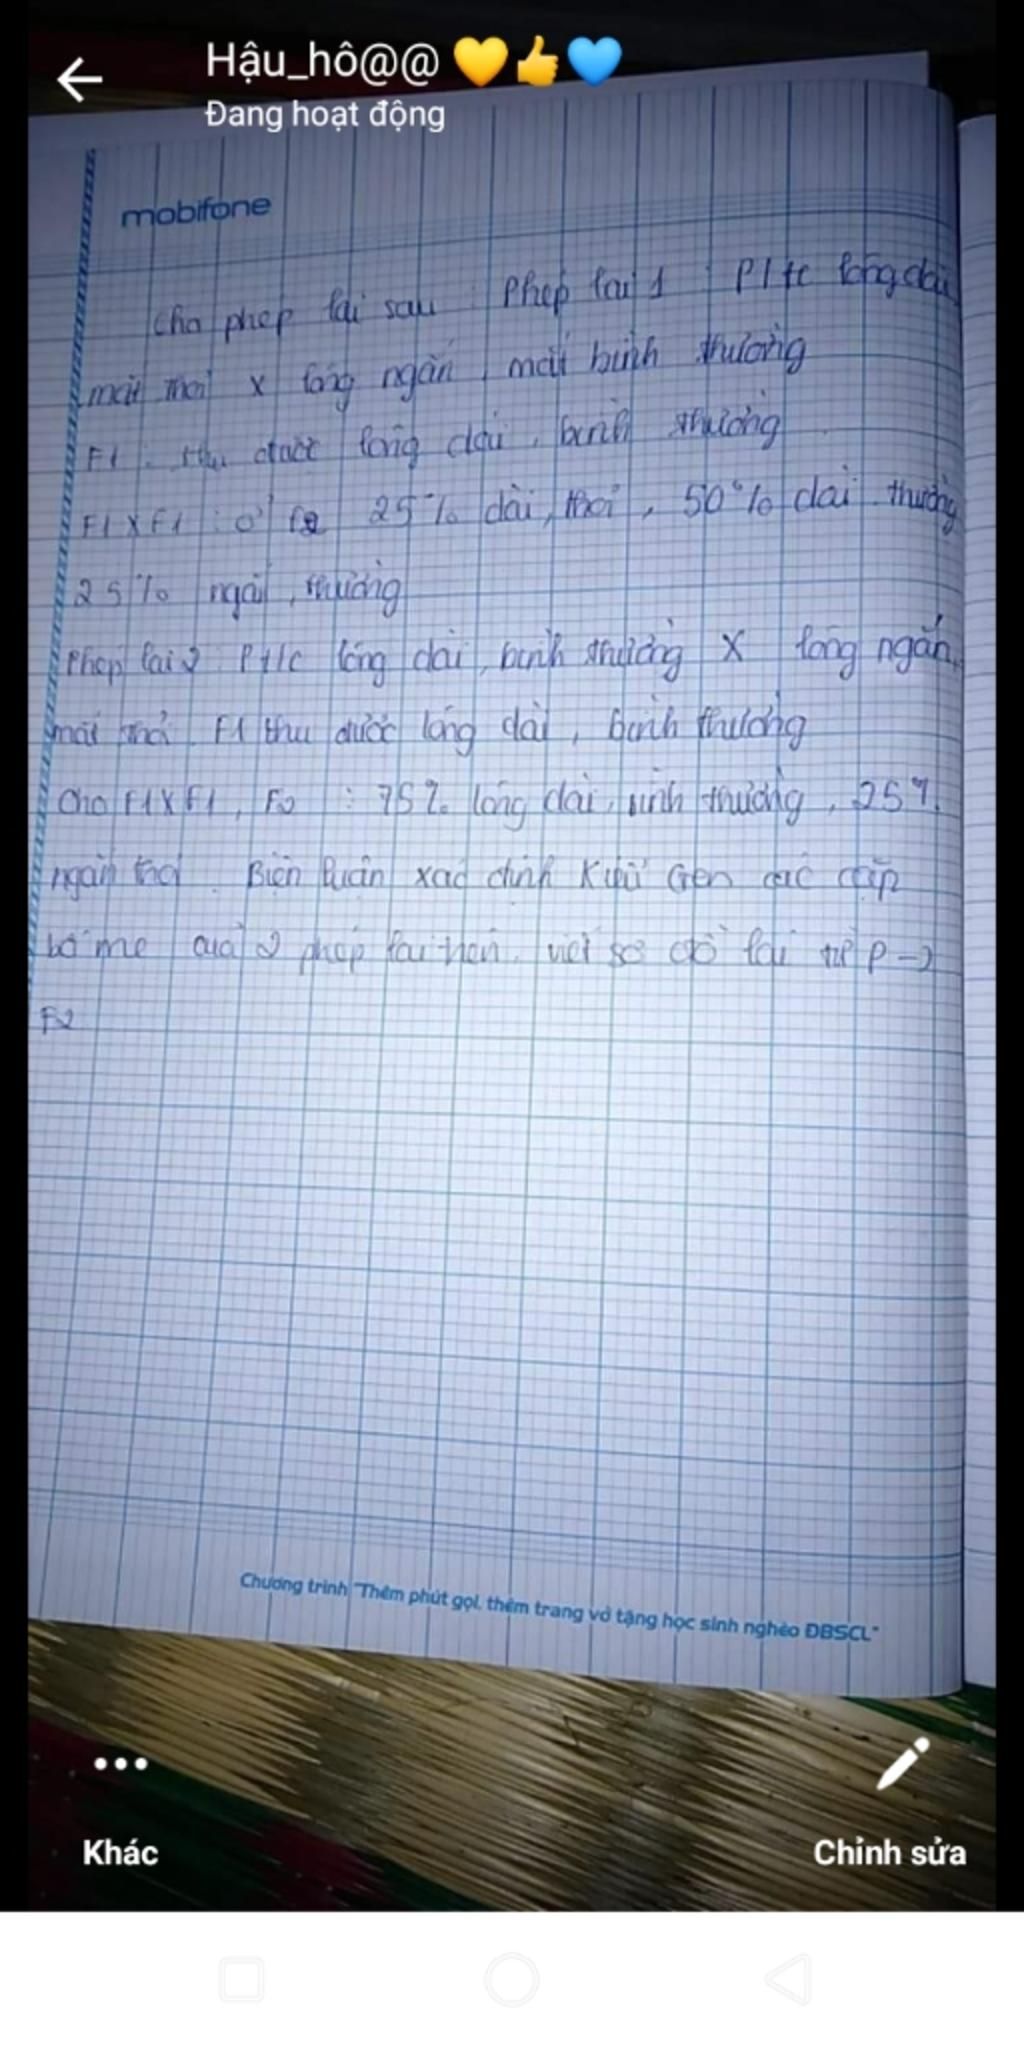 Hậu_hô@@ 💛👍💙
Đang hoạt động
mobifone
Cho phép lai sau : Phép lai 1 : P t/c lông dài,
mắt thỏi x lông ngắn, mắt bình thường
F1 : thu được lông dài, bình thường
F1 x F1 : ở F2 25% dài, thỏi, 50% dài thường
25% ngắn, thường
Phép lai 2 P t/c lông dài, bình thường x lông ngắn,
mắt thỏi. F1 thu được lông dài, bình thường
Cho F1 x F1, F2 : 75% lông dài, bình thường, 25%
ngắn thỏi. Biện luận xác định Kiểu Gen các cặp
bố mẹ của 2 phép lai trên. viết sơ đồ lai từ P ->
F2
Chương trình "Thêm phút gọi, thêm trang vở tặng học sinh nghèo ĐBSCL"
Khác
Chỉnh sửa